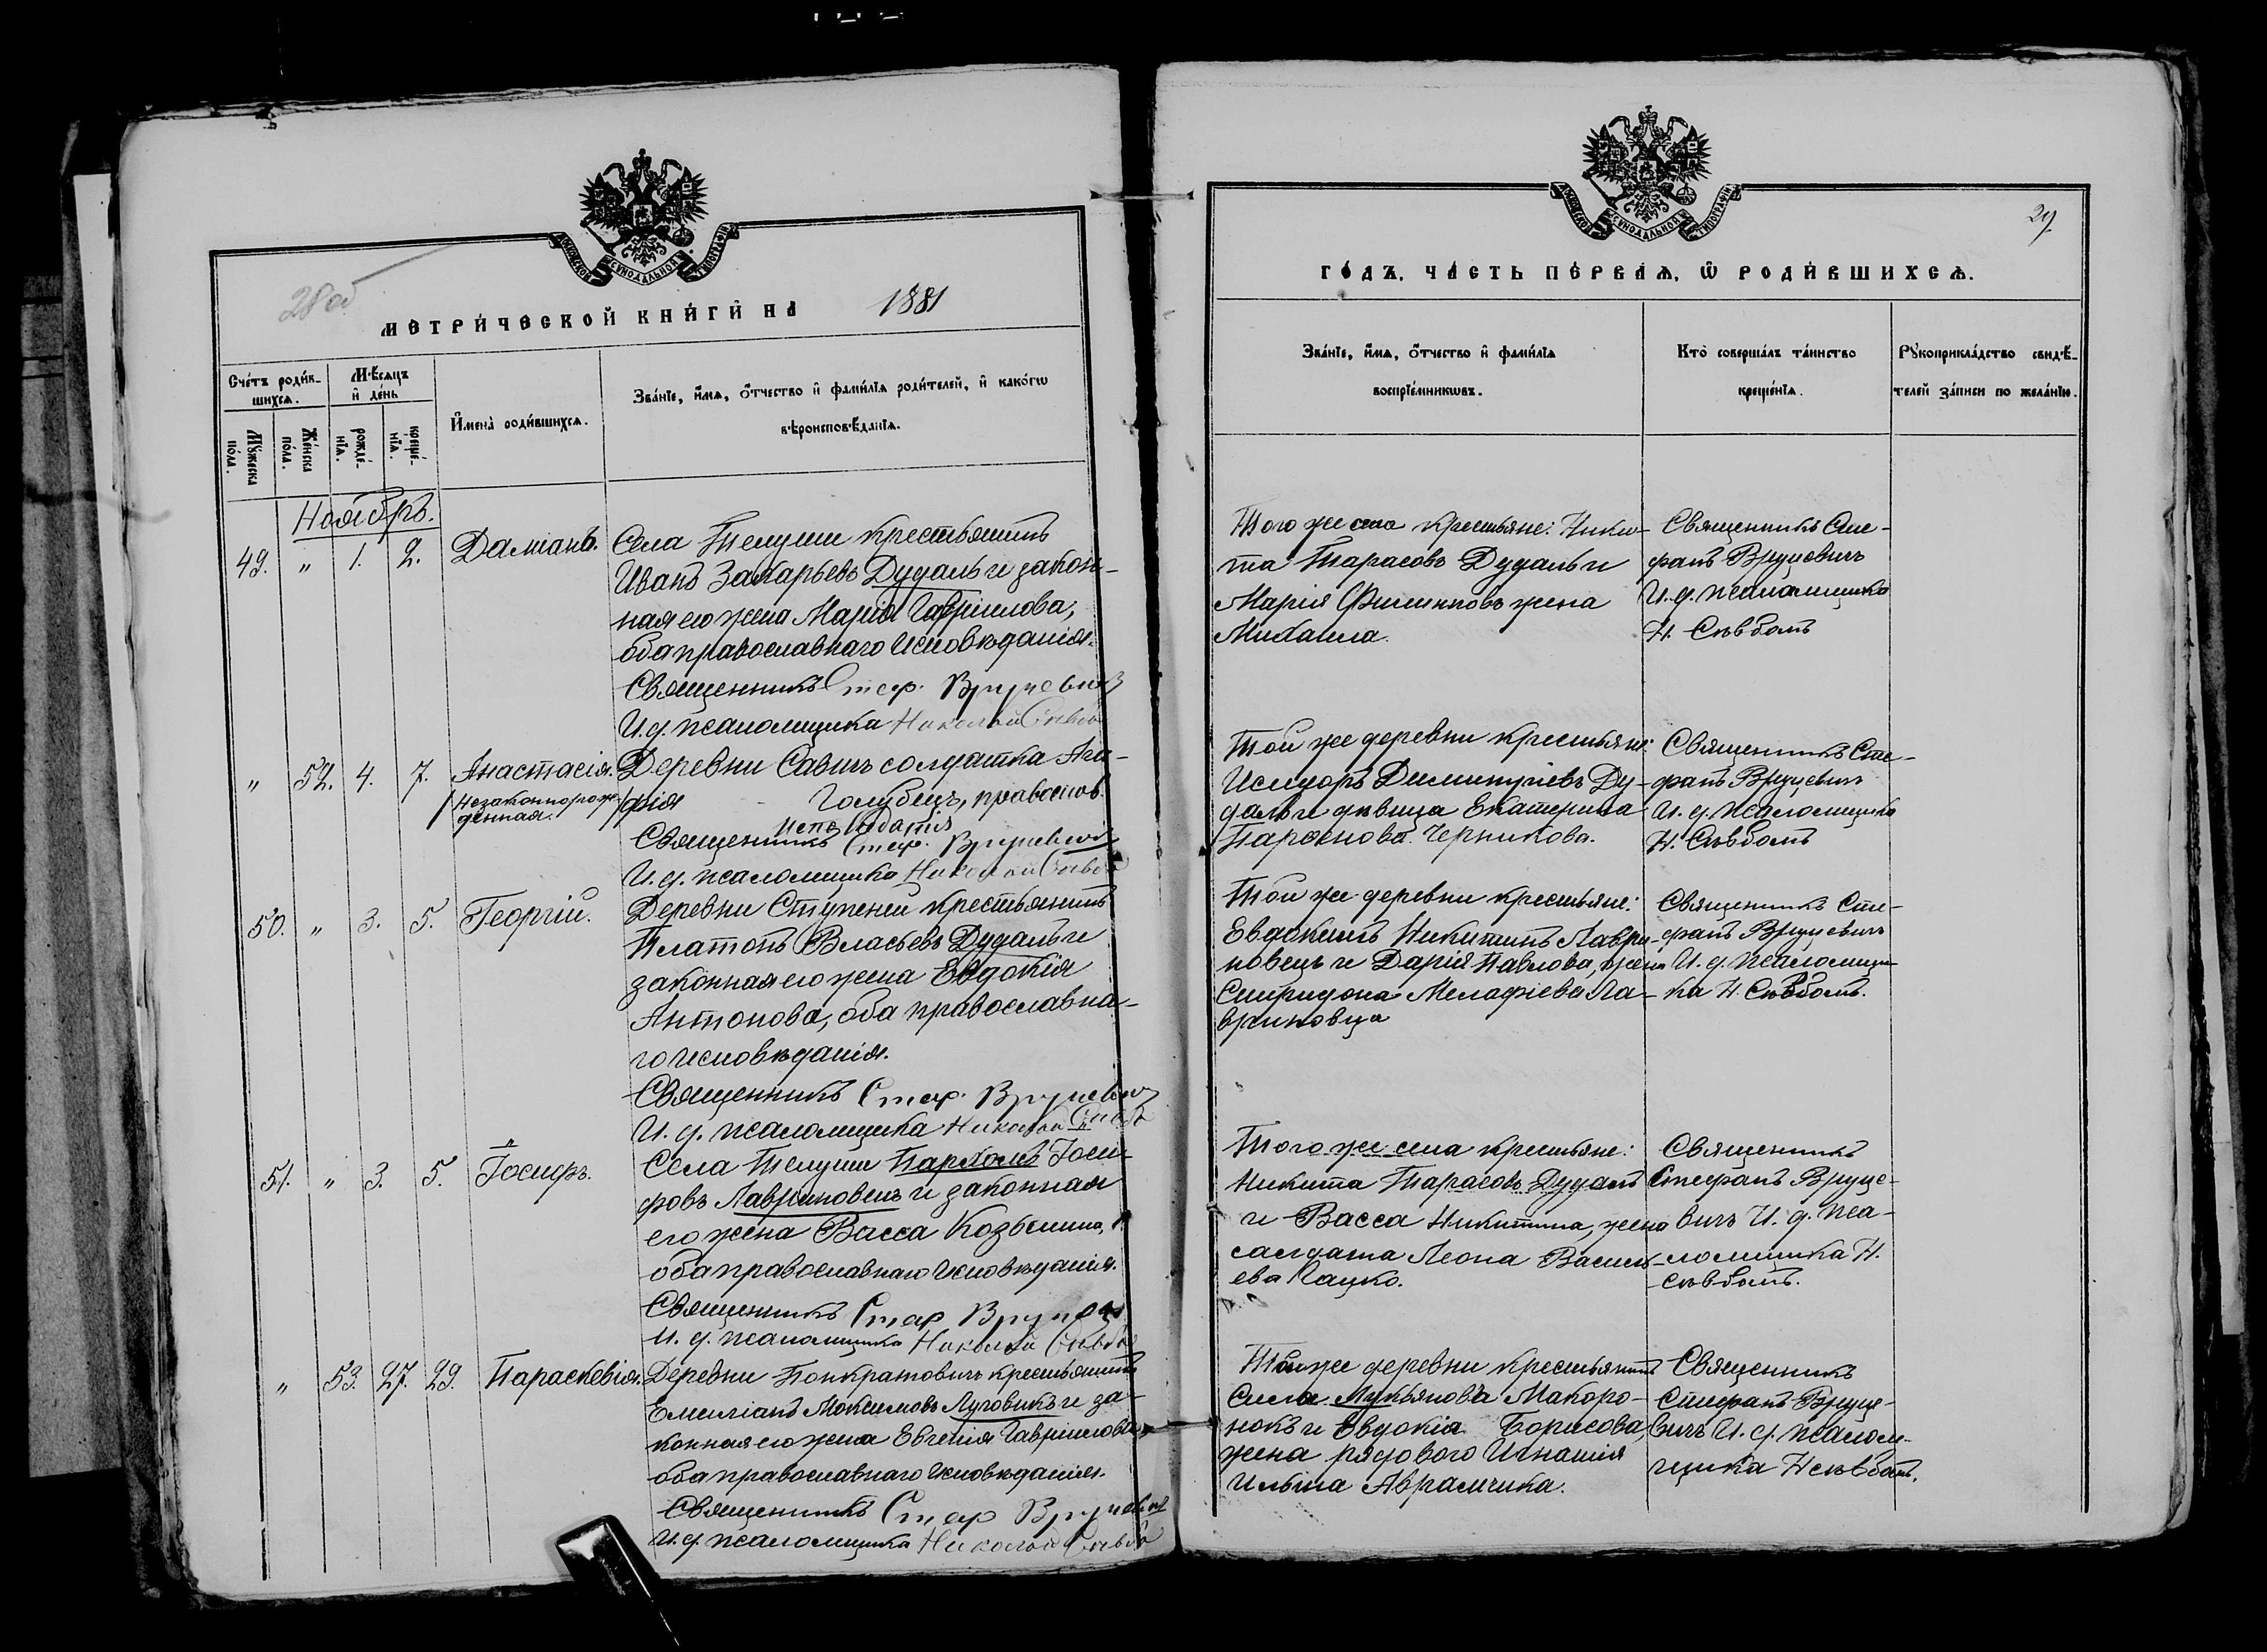 28 об
МЕТРИ́ЧЕСКОЙ КНИ́ГИ НА 1881
Сче́тъ роди́в-
шихсѧ.
Мѣ́сѧцъ
и де́нь
Имена̀ роди́вшихсѧ.
Зва́нїе, и́мѧ, ѻ҆́тчество и фами́лїѧ роди́телей, и како́гѡ
вѣроисповѣ́данїѧ.
Мꙋ́жеска
по́ла.
Же́нска
по́ла.
рожде́-
нїѧ.
креще́-
нїѧ.
Ноябрь.
49. " 1. 2. Даміанъ. Села Телуши крестьянинъ
Иванъ Захарьевъ Дудаль и закон-
ная его жена Марія Гавріилова;
оба православнаго исповѣданія.
Священникъ Стеф. Вруцевичъ
И. д. псаломщика Николай
" 52. 4. 7. Анастасія. Деревни Савичъ солдатка Ага-
/Незаконнорож-
денная./
фія Голубецъ, православ.
исповѣданія
Священникъ Стеф. Вруцевичъ
И. д. псаломщика Николай
50. " 3. 5. Георгій. Деревни Ступени крестьянинъ
Платонъ Власьевъ Дудаль и
законная его жена Евдокія
Антонова, оба православна-
го исповѣданія.
Священникъ Стеф. Вруцевичъ
И. д. псаломщика Николай
51. " 3. 5. Іосифъ. Села Телуши Пархомъ Іоси-
фовъ Лавриновецъ и законная
его жена Васса Козьмина,
оба православнаго исповѣданія.
Священникъ Стеф Вруцевичъ
И. д. псаломщика Николай
" 53. 27. 29. Параскевія. Деревни Панкратовичъ крестьянинъ
Емиліанъ Максимовъ Луговикъ и за-
конная его жена Евгенія Гавріилова,
оба православнаго исповѣданія.
Священникъ Стеф Вруцевичъ
И. д. псаломщика Николай
29
ГО́ДЪ, ЧА́СТЬ ПЕ́РВАѦ, Ѡ҆ РОДИ́ВШИХСѦ.
Зва́нїе, и́мѧ, ѻ҆́тчество и фами́лїѧ
воспрїе́мникѡвъ.
Кто̀ соверша́лъ та́инство
креще́нїѧ.
Рꙋкоприкла́дство свидѣ́-
телей за́писи по жела́нїю.
Того же села крестьяне: Ники-
та Тарасовъ Дудаль и
Марія Филиппова жена
Михаила.
Священникъ Сте-
фанъ Вруцевичъ
И. д. псаломщика
Н.
Той же деревни крестьяне:
Исидоръ Димитріевъ Ду-
даль и дѣвица Екатерина
Парѳенова Черникова.
Священникъ Сте-
фанъ Вруцевичъ
И. д. псаломщика
Н.
Той же деревни крестьяне:
Евдокимъ Никитинъ Лаври-
новецъ и Дарія Павлова, жена
Спиридона Мелафіева Ла-
вриновца
Священникъ Сте-
фанъ Вруцевичъ
И. д. псаломщи-
ка Н.
Того же села крестьяне:
Никита Тарасовъ Дудаль
и Васса Никитина, жена
салдата Леона Василь-
ева Кацко.
Священникъ
Стефанъ Вруце-
вичъ И. д. пса-
ломщика Н.
Той же деревни крестьянинъ
Сила Лукьяновъ Макоро-
нокъ и Евдокія Борисова,
жена рядового Игнатія
Ильина Аврамчика.
Священникъ
Стефанъ Вруце-
вичъ И. д. псалом-
щика Н